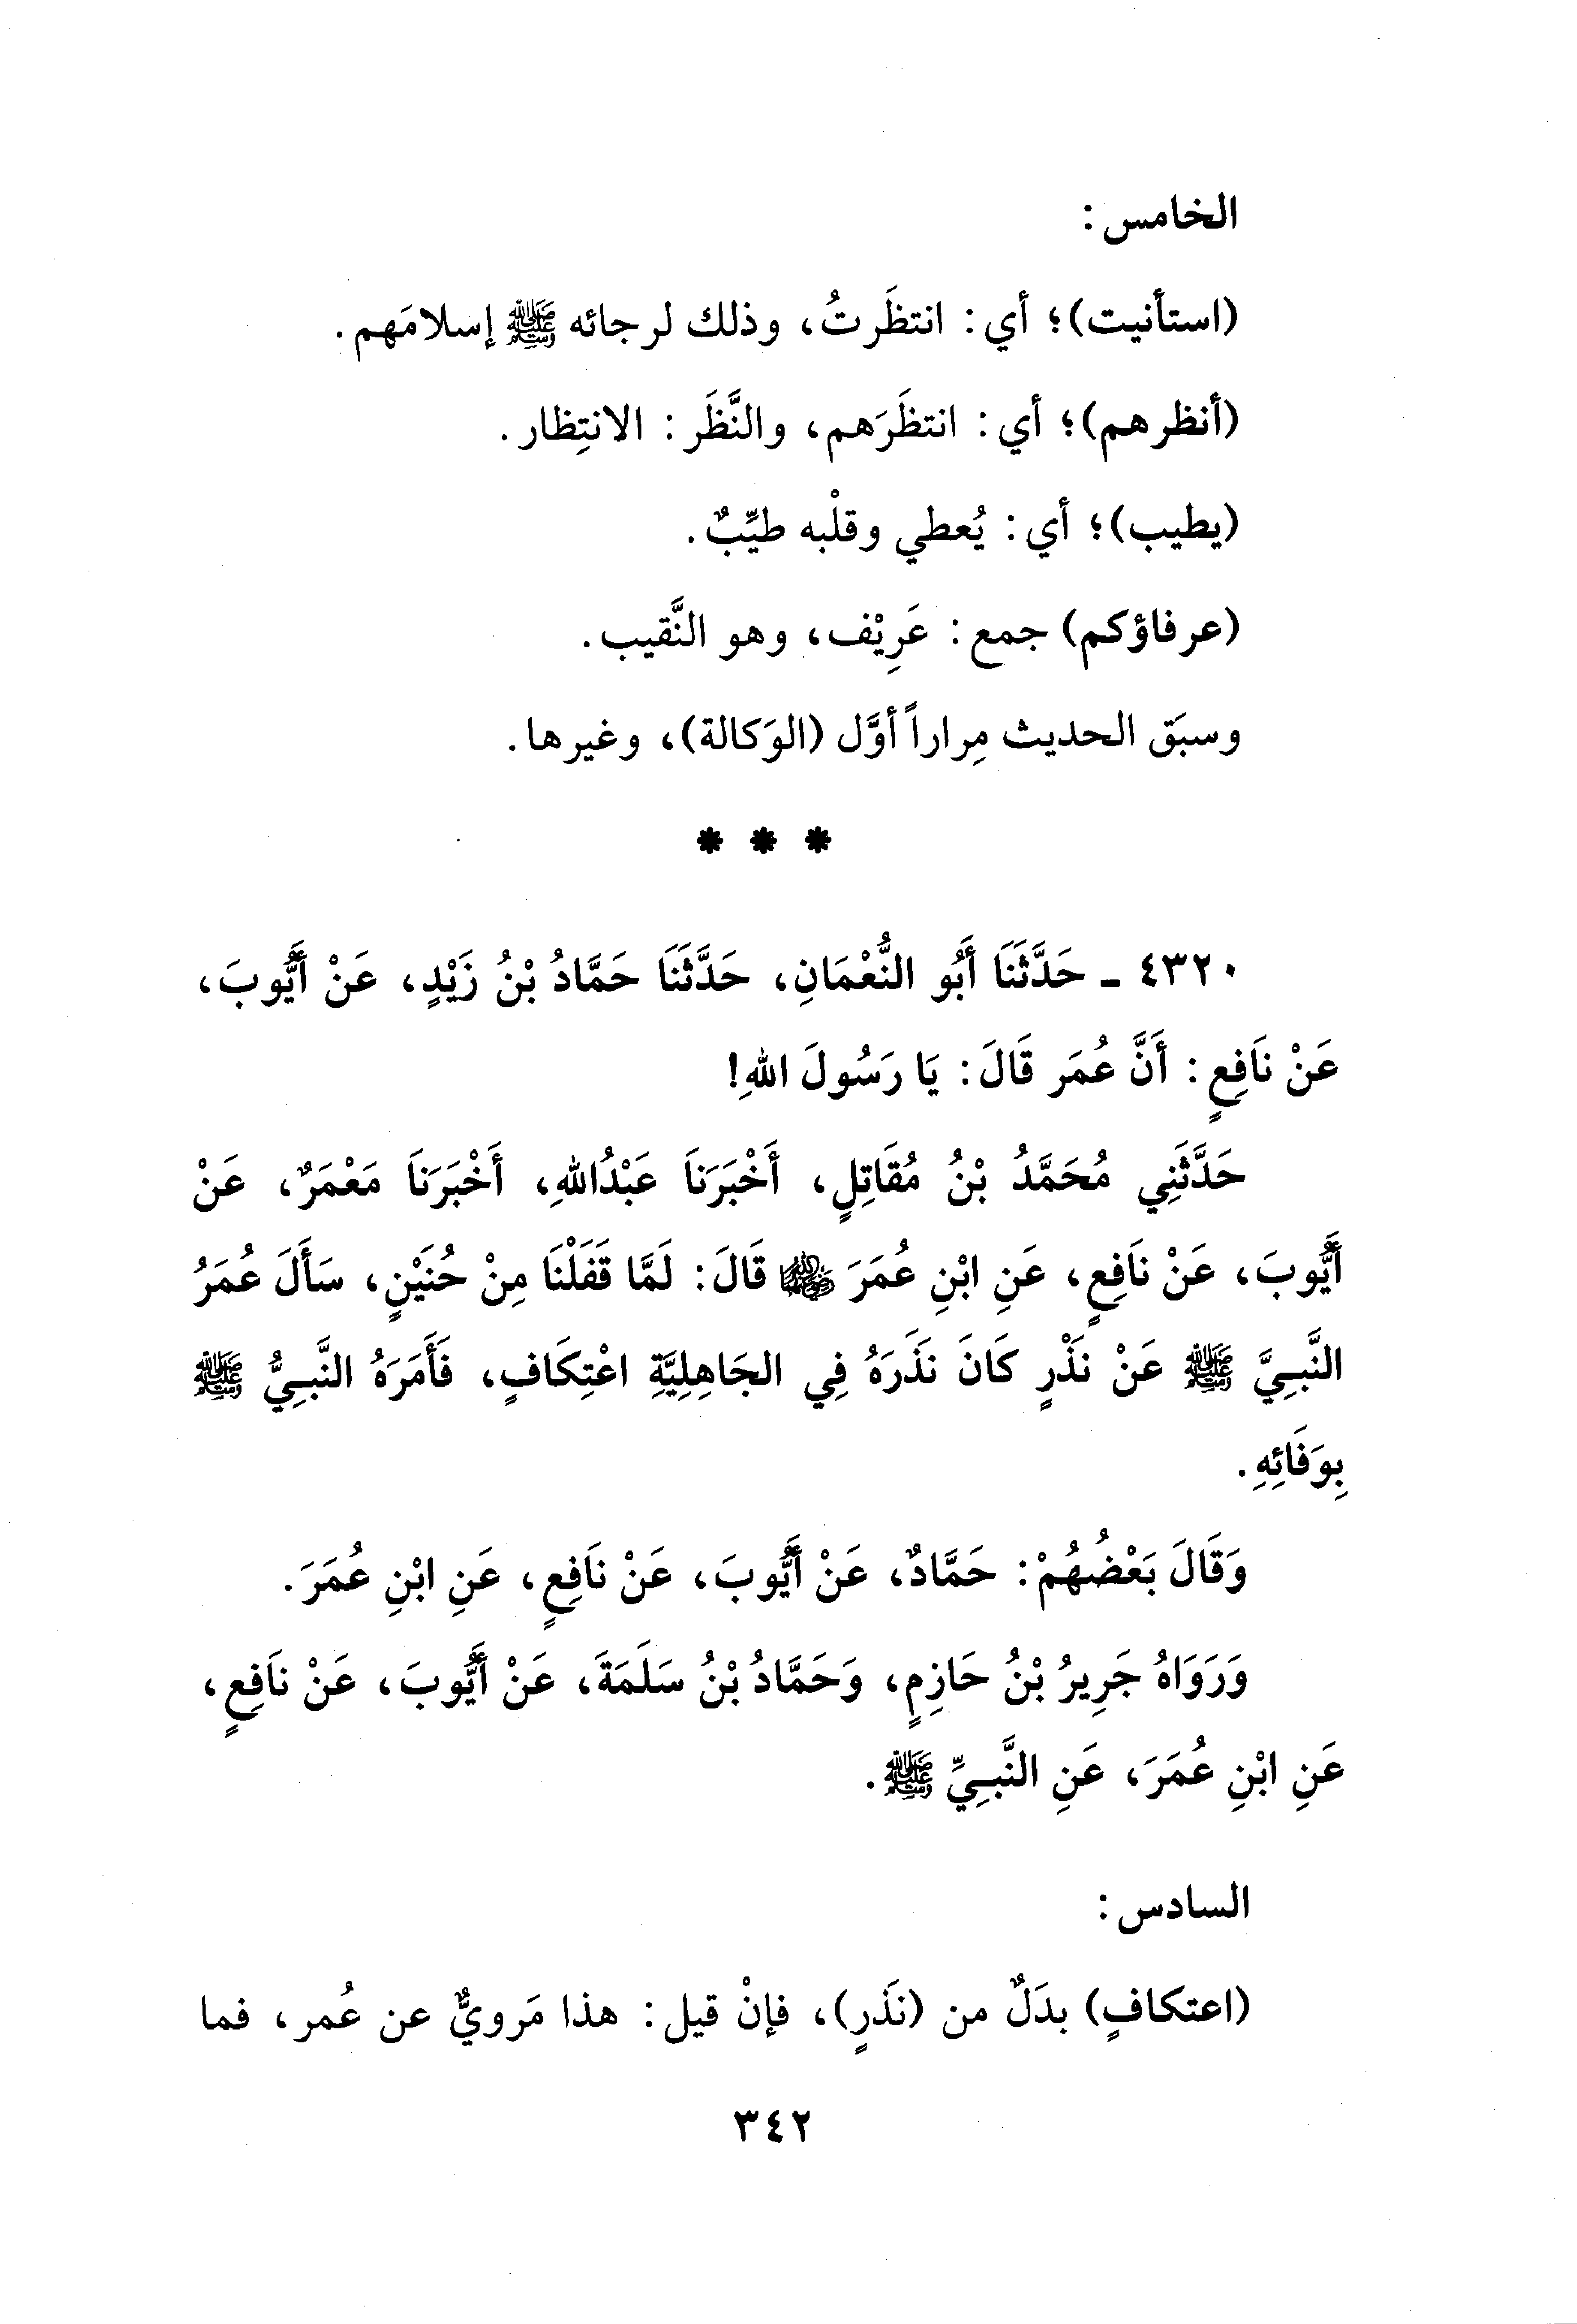 الخامس:
(استأنيت)؛ أي: انتظَرتُ، وذلك لرجائه ﷺ إسلامَهم.
(أنظرهم)؛ أي: انتظَرَهم، والنَّظَر: الانتِظار.
(يطيب)؛ أي: يُعطي وقلْبه طيِّبٌ.
(عرفاؤكم) جمع: عَرِيْف، وهو النَّقيب.
وسبَق الحديث مِراراً أوَّل (الوَكالة)، وغيرها.
* * *
٤٣٢٠ - حَدَّثَنَا أَبُو النُّعْمَانِ، حَدَّثَنَا حَمَّادُ بْنُ زَيْدٍ، عَنْ أَيُّوبَ،
عَنْ نَافِعٍ: أَنَّ عُمَر قَالَ: يَا رَسُولَ اللهِ!
حَدَّثَنِي مُحَمَّدُ بْنُ مُقَاتِلٍ، أَخْبَرَنَا عَبْدُاللهِ، أَخْبَرَنَا مَعْمَرٌ، عَنْ
أَيُّوبَ، عَنْ نَافِعٍ، عَنِ ابْنِ عُمَرَ ﵄ قَالَ: لَمَّا قَفَلْنَا مِنْ حُنَيْنٍ، سَأَلَ عُمَرُ
النَّبِيَّ ﷺ عَنْ نَذْرٍ كَانَ نَذَرَهُ فِي الجَاهِلِيَّةِ اعْتِكَافٍ، فَأَمَرَهُ النَّبِيُّ ﷺ
بِوَفَائِهِ.
وَقَالَ بَعْضُهُمْ: حَمَّادٌ، عَنْ أَيُّوبَ، عَنْ نَافِعٍ، عَنِ ابْنِ عُمَرَ.
وَرَوَاهُ جَرِيرُ بْنُ حَازِمٍ، وَحَمَّادُ بْنُ سَلَمَةَ، عَنْ أَيُّوبَ، عَنْ نَافِعٍ،
عَنِ ابْنِ عُمَرَ، عَنِ النَّبِيِّ ﷺ.
السادس:
(اعتكافٍ) بدَلٌ من (نَذرٍ)، فإنْ قيل: هذا مَرويٌّ عن عُمر، فما
٣٤٢